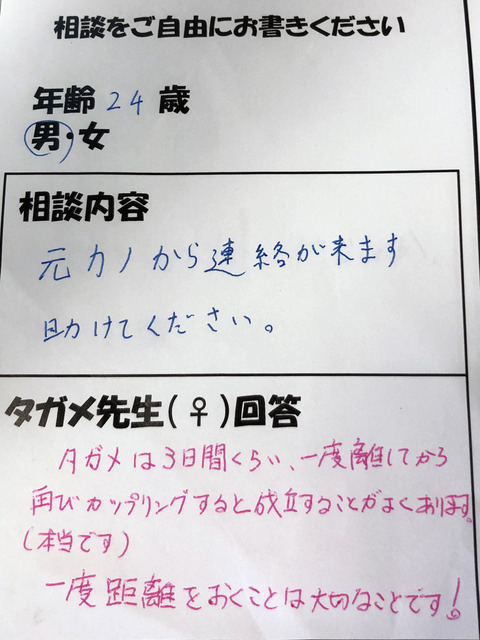 相談をご自由にお書きください
年齢 24 歳
男・女
相談内容
元カノから連絡が来ます
助けてください。
タガメ先生(♀)回答
タガメは3日間くらい、一度離してから
再びカップリングすると成立することがよくあります。
(本当です)
一度距離をおくことは大切なことです!